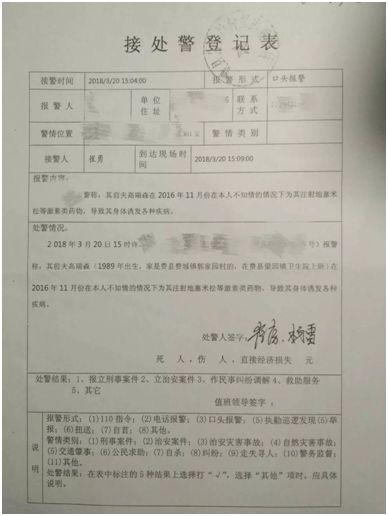 接处警登记表
接警时间 2018/3/20 15:04:00 报警形式 口头报警
报警人 单位住址 联系方式
警情位置 警情类别
接警人 崔勇 到达现场时间 2018/3/20 15:09:00
报警内容:
警称,其前夫高瑞森在 2016 年 11 月份在本人不知情的情况下为其注射地塞米
松等激素类药物,导致其身体诱发各种疾病。
处警情况:
2018 年 3 月 20 日 15 时许 报警
称,其前夫高瑞森(1989 年出生,家是费县费城镇郭家园村的,在费县梁邱镇卫生院上班)在
2016 年 11 月份在本人不知情的情况下为其注射地塞米松等激素类药物,导致其身体诱发各种
疾病。
处警人签字:
死 人,伤 人,直接经济损失 元
处警结果:1、报立刑事案件 2、立治安案件 3、作民事纠纷调解 4、救助服务
5、其它
值班领导签字:
说明
报警形式:(1)110 指令;(2)电话报警;(3)口头报警;(4)投案;(5)举
报;(6)扭送;(7)自首;(8)其他。
警情类别:(1)刑事案件;(2)治安案件;(3)治安灾害事故;(4)自然灾害事故;
(5)交通肇事;(6)公民求助;(7)自杀;(8)纠纷;(9)走失寻人;(10)警务监督;
(11)其他。
处警结果:在表中标注的 5 种结果上选择打“√”,选择“其他”项时,应具体
说明。